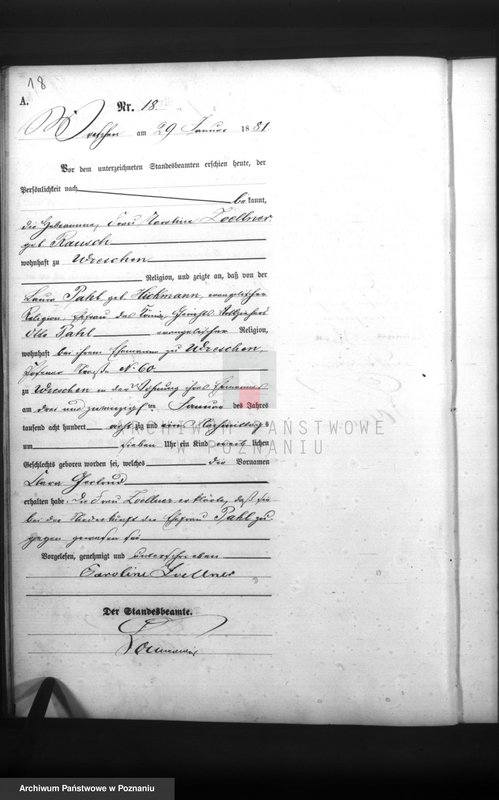 18
A.
Nr. 18.
Wreschen am 29 Januar 1881.
Vor dem unterzeichneten Standesbeamten erschien heute, der
Persönlichkeit nach
bekannt,
die Hebeamme, Frau Caroline Loellner
geb. Rausch
wohnhaft zu Wreschen
Religion, und zeigte an, daß von der
Laura Pahl geb. Hickmann, evangelischer
Religion, Ehefrau des Königl. Gerichts Vollziehers
Otto Pahl evangelischer Religion,
wohnhaft bei ihrem Ehemanne zu Wreschen,
Posener Straße N. 60.
zu Wreschen in der Wohnung ihres Ehemannes
am drei und zwanzigsten Januar des Jahres
tausend acht hundert achtzig und ein Nachmittags
um sieben Uhr ein Kind weiblichen
Geschlechts geboren worden sei, welches die Vornamen
Clara Gertrud
erhalten habe. Die Frau Loellner erklärte, daß sie
bei der Niederkunft der Ehefrau Pahl zu
gegen gewesen sei
Vorgelesen, genehmigt und unterschrieben
Caroline Loellner
Der Standesbeamte.
ARCHIWUM PAŃSTWOWE
W POZNANIU
Archiwum Państwowe w Poznaniu